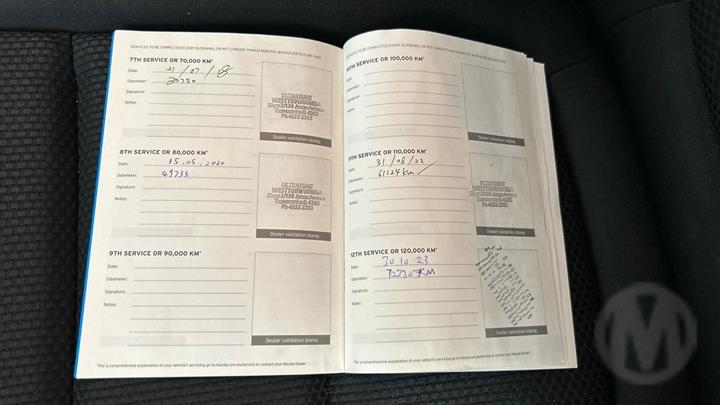 SERVICES TO BE COMPLETED EVERY 10,000KMS, OR NOT LONGER THAN 12 MONTHS, WHICHEVER OCCURS FIRST.
7TH SERVICE OR 70,000 KM*
Date: 21/07/
Odometer: 30750
Signature:
Notes:
ULTRATUNE
WEST TOOWOOMBA
Toowoomba Q 4350
Ph 4633 2383
Dealer validation stamp
8TH SERVICE OR 80,000 KM*
Date: 15.05.2020
Odometer: 49733
Signature:
Notes:
ULTRATUNE
WEST TOOWOOMBA
Toowoomba Q 4350
Ph 4633 2383
Dealer validation stamp
9TH SERVICE OR 90,000 KM*
Date:
Odometer:
Signature:
Notes:
Dealer validation stamp
*For a comprehensive explanation of your vehicle's servicing go to mazda.com.au/service or contact your Mazda Dealer.
SERVICES TO BE COMPLETED EVERY 10,000KMS, OR NOT LONGER THAN 12 MONTHS, WHICHEVER OCCURS FIRST.
10TH SERVICE OR 100,000 KM*
Date:
Odometer:
Signature:
Notes:
Dealer validation stamp
11TH SERVICE OR 110,000 KM*
Date: 31/08/22
Odometer: 61124km
Signature:
Notes:
ULTRATUNE
WEST TOOWOOMBA
Toowoomba Q 4350
Ph 4633 2383
Dealer validation stamp
12TH SERVICE OR 120,000 KM*
Date: 30.10.23
Odometer: 72307KM
Signature:
Notes:
Dealer validation stamp
*For a comprehensive explanation of your vehicle's servicing go to mazda.com.au/service or contact your Mazda Dealer.
M